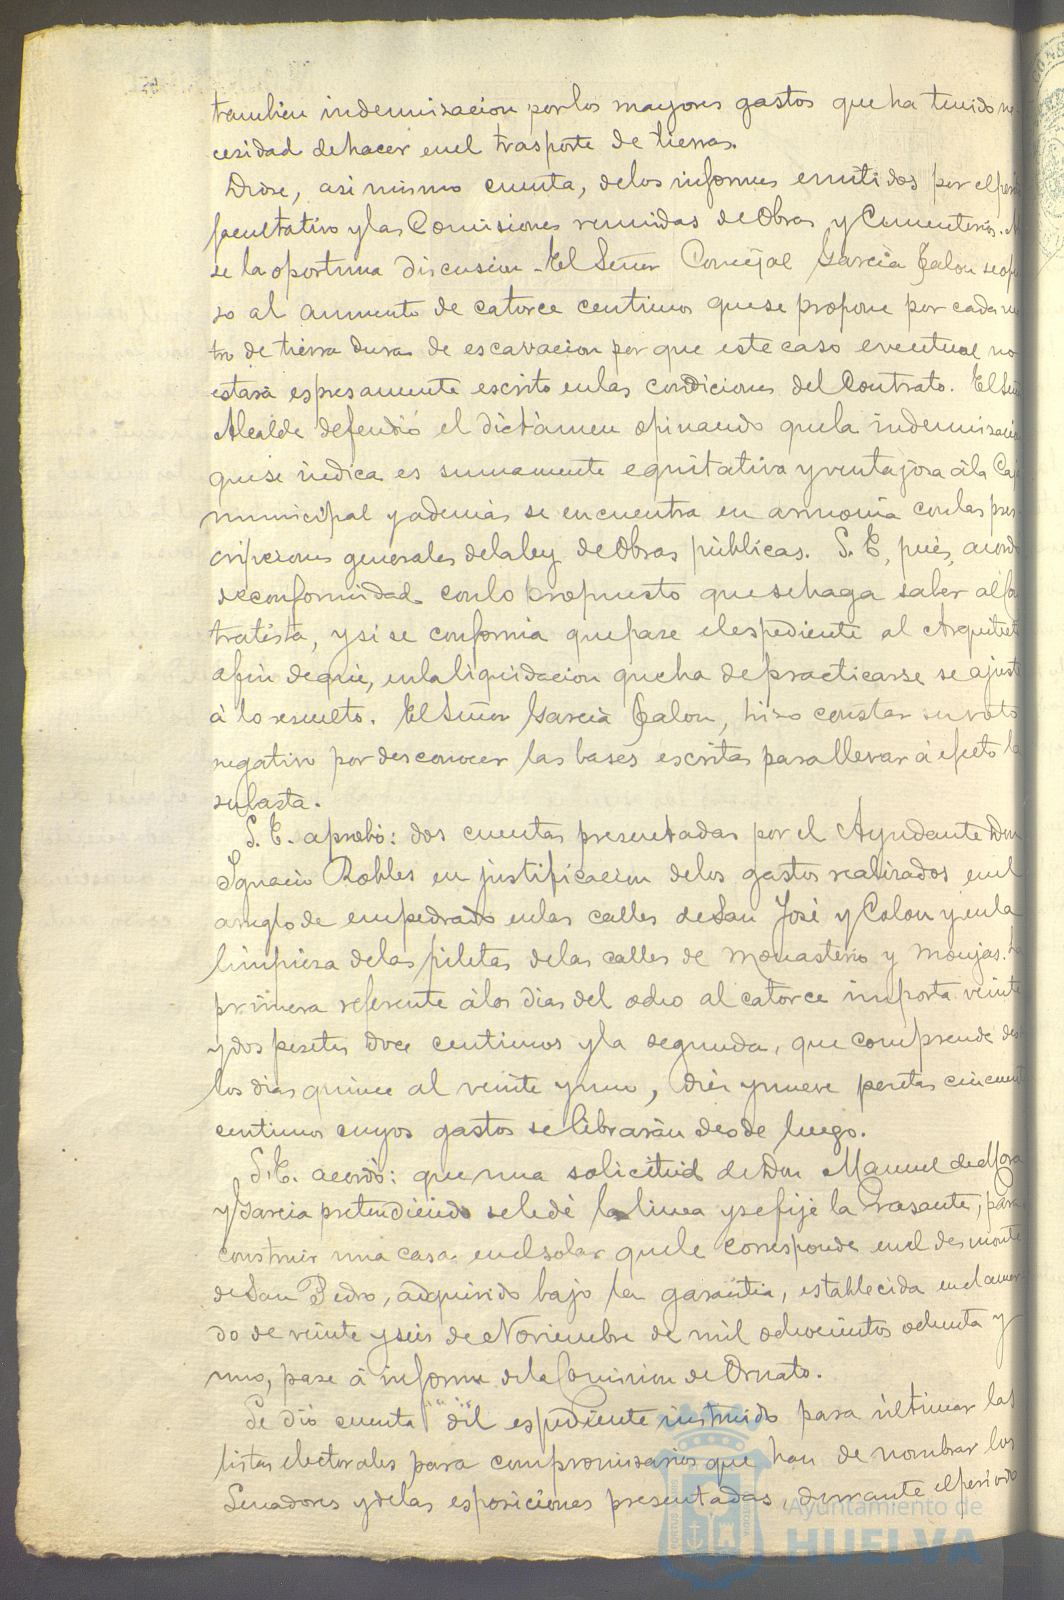 tambien indemnizacion por los mayores gastos que ha tenido ne-
cesidad de hacer en el trasporte de tierras.
Diose, asi mismo cuenta, de los informes emitidos por el perito
facultativo y las Comisiones reunidas de Obras y Cementerios.
se la oportuna discusion. El Señor Concejal Garcia Jalon se opu
so al aumento de catorce centimos que se propone por cada me
tro de tierra dura de escavacion por que este caso eventual no
estará espresamente escrito en las condiciones del Contrato. El Señor
Alcalde defendió el dictámen opinando que la indemnizacion
que se indica es sumamente equitativa y ventajosa á la Caja
municipal y además se encuentra en armonia con las pres
cripciones generales de la ley de Obras públicas. S. E, pues, acordó
de conformidad con lo propuesto que se haga saber al Con
tratista, y si se conforma que pase el espediente al Arquitecto
a fin de que, en la liquidacion que ha de practicarse se ajuste
á lo resuelto. El Señor Garcia Jalon, hizo constar su voto
negativo por desconocer las bases escritas para llevar á efecto la
subasta.
S. E. aprobó: dos cuentas presentadas por el Ayudante Don
Ignacio Robles en justificacion de los gastos realizados en el
arreglo de empedrado en las calles de San José y Colon y en la
limpieza de las piletas de las calles de Monasterio y Monjas. La
primera referente á los dias del ocho al catorce importa veinte
y dos pesetas doce centimos y la segunda, que comprende des
los dias quince al veinte y uno, diez y nueve pesetas cincuenta
centimos cuyos gastos se librarán desde luego.
S. E. acordó: que una solicitud de Don Manuel de Mora
y Garcia pretendiendo se le dé la linea y se fije la rasante, para
construir una casa en el solar que le corresponde en el desmonte
de San Pedro, adquirido bajo la garantia, establecida en el acuer-
do de veinte y seis de Noviembre de mil ochocientos ochenta y
uno, pase á informe de la Comision de Ornato.
Se dió cuenta del espediente instruido para últimar las
listas electorales para compromisarios que han de nombrar los
Senadores y de las esposiciones presentadas durante el periodo
Ayuntamiento de
HUELVA